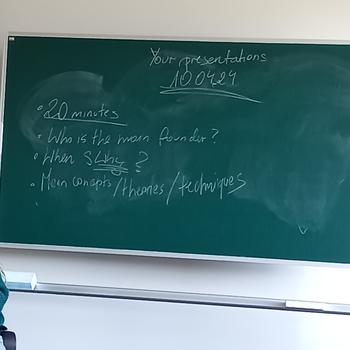 Your presentations
100424
• 20 minutes
• Who is the main founder?
• When & Why?
• Main concepts/theories/techniques
•